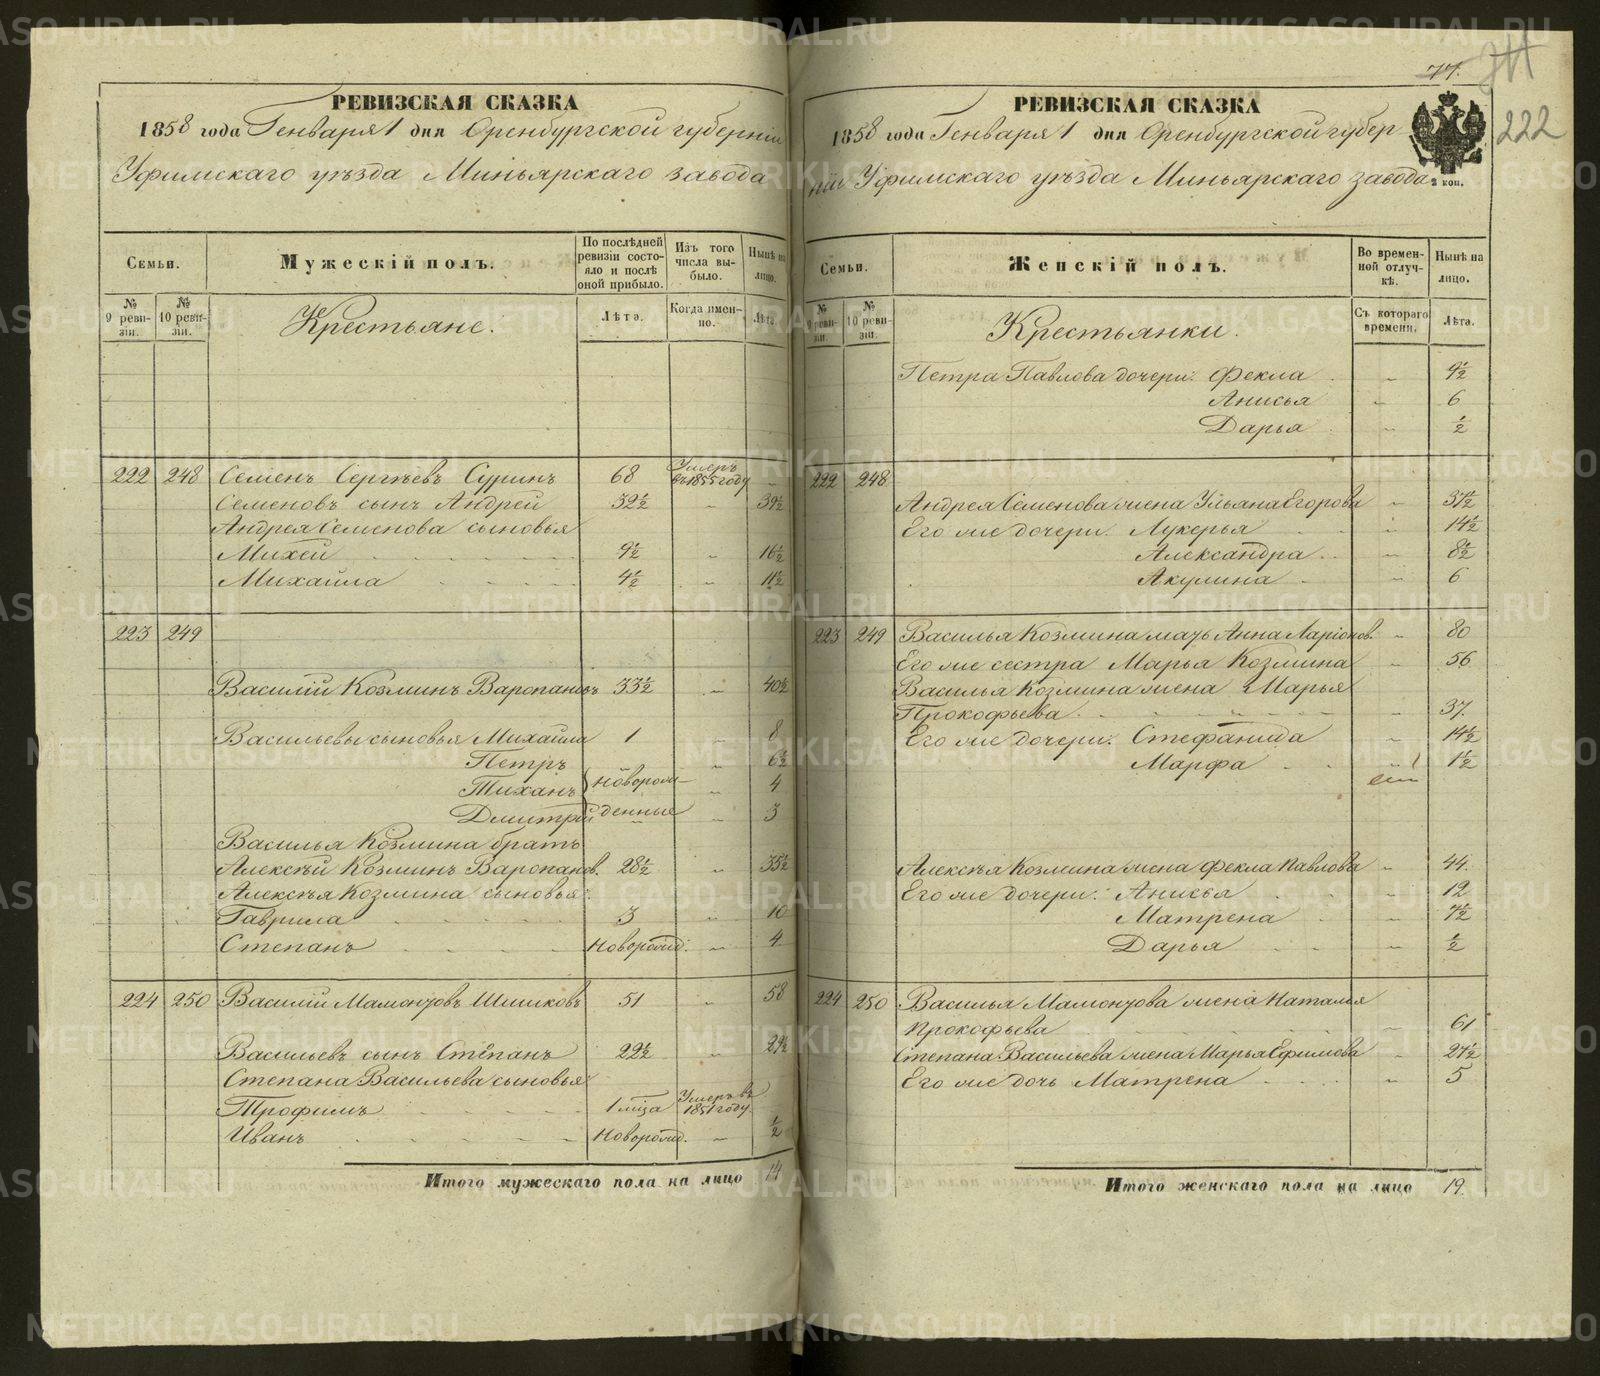 77.
222
РЕВИЗСКАЯ СКАЗКА
1858 года Генваря 1 дня Оренбургской губерніи
Уфимскаго уѣзда Миньярскаго завода
Семьи.
Мужескій полъ.
По послѣдней ревизіи состояло и послѣ оной прибыло.
Изъ того числа выбыло.
Нынѣ на лицо.
№ 9 ревизіи.
№ 10 ревизіи.
Крестьяне.
Лѣта.
Когда именно.
Лѣта.
222 248 Семенъ Сергѣевъ Суринъ 68 Умеръ въ 1855 году
Семеновъ сынъ Андрей 32½ " 39½
Андрея Семенова сыновья
Михей 9½ " 16½
Михайла 4½ " 11½
223 249
Василій Козминъ Варопановъ 33½ " 40½
Васильевы сыновья Михайла 1 " 8
Петръ " 6½
Тиханъ новорож- " 4
Дмитрій денные " 3
Василья Козмина братъ
Алексѣй Козминъ Варопанов. 28½ " 35½
Алексѣя Козмина сыновья:
Гаврила 3 " 10
Степанъ Новорожд: " 4
224 250 Василій Мамонтовъ Шишковъ 51 " 58
Васильевъ сынъ Степанъ 22½ " 29½
Степана Васильева сыновья:
Трофимъ 1 мѣся Умеръ въ 1851 году.
Иванъ Новорожд. " ½
Итого мужескаго пола на лицо 14
РЕВИЗСКАЯ СКАЗКА
1858 года Генваря 1 дня Оренбургской губер
ніи Уфимскаго уѣзда Миньярскаго завода
2 коп.
Семьи.
Женскій полъ.
Во временной отлучкѣ.
Нынѣ на лицо.
№ 9 ревизіи.
№ 10 ревизіи.
Крестьянки.
Съ котораго времени.
Лѣта.
Петра Павлова дочери: Фекла " 9½
Анисья " 6
Дарья " ½
222 248
Андрея Семенова жена Ульяна Егорова " 37½
Его же дочери: Лукерья " 14½
Александра " 8½
Акулина " 6
223 249 Василья Козмина мать Анна Ларіонов. " 80
Его же сестра Марья Козмина " 56
Василья Козмина жена Марья
Прокофьева " 37.
Его же дочери: Стефанида " 14½
Марфа " 1½
Алексѣя Козмина жена Фекла Павлова " 44.
Его же дочери: Анисья " 12
Матрена " 7½
Дарья " ½
224 250 Василья Мамонтова жена Наталья
Прокофьева " 61
Степана Васильева жена Марья Ефимова " 27½
Его же дочь Матрена " 5
Итого женскаго пола на лицо 19.
METRIKI.GASO-URAL.RU